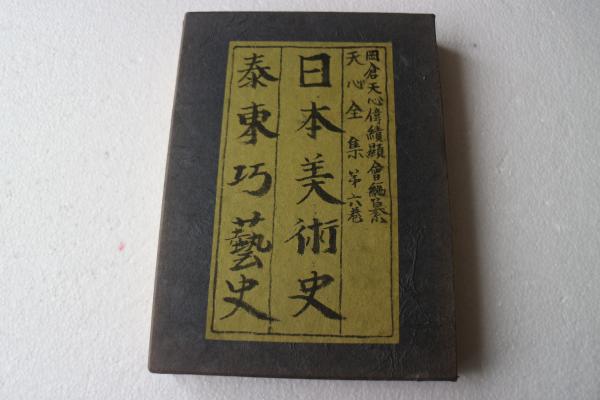 岡倉天心偉績顯會編纂
天心全集 第六巻
日本美術史
泰東巧藝史